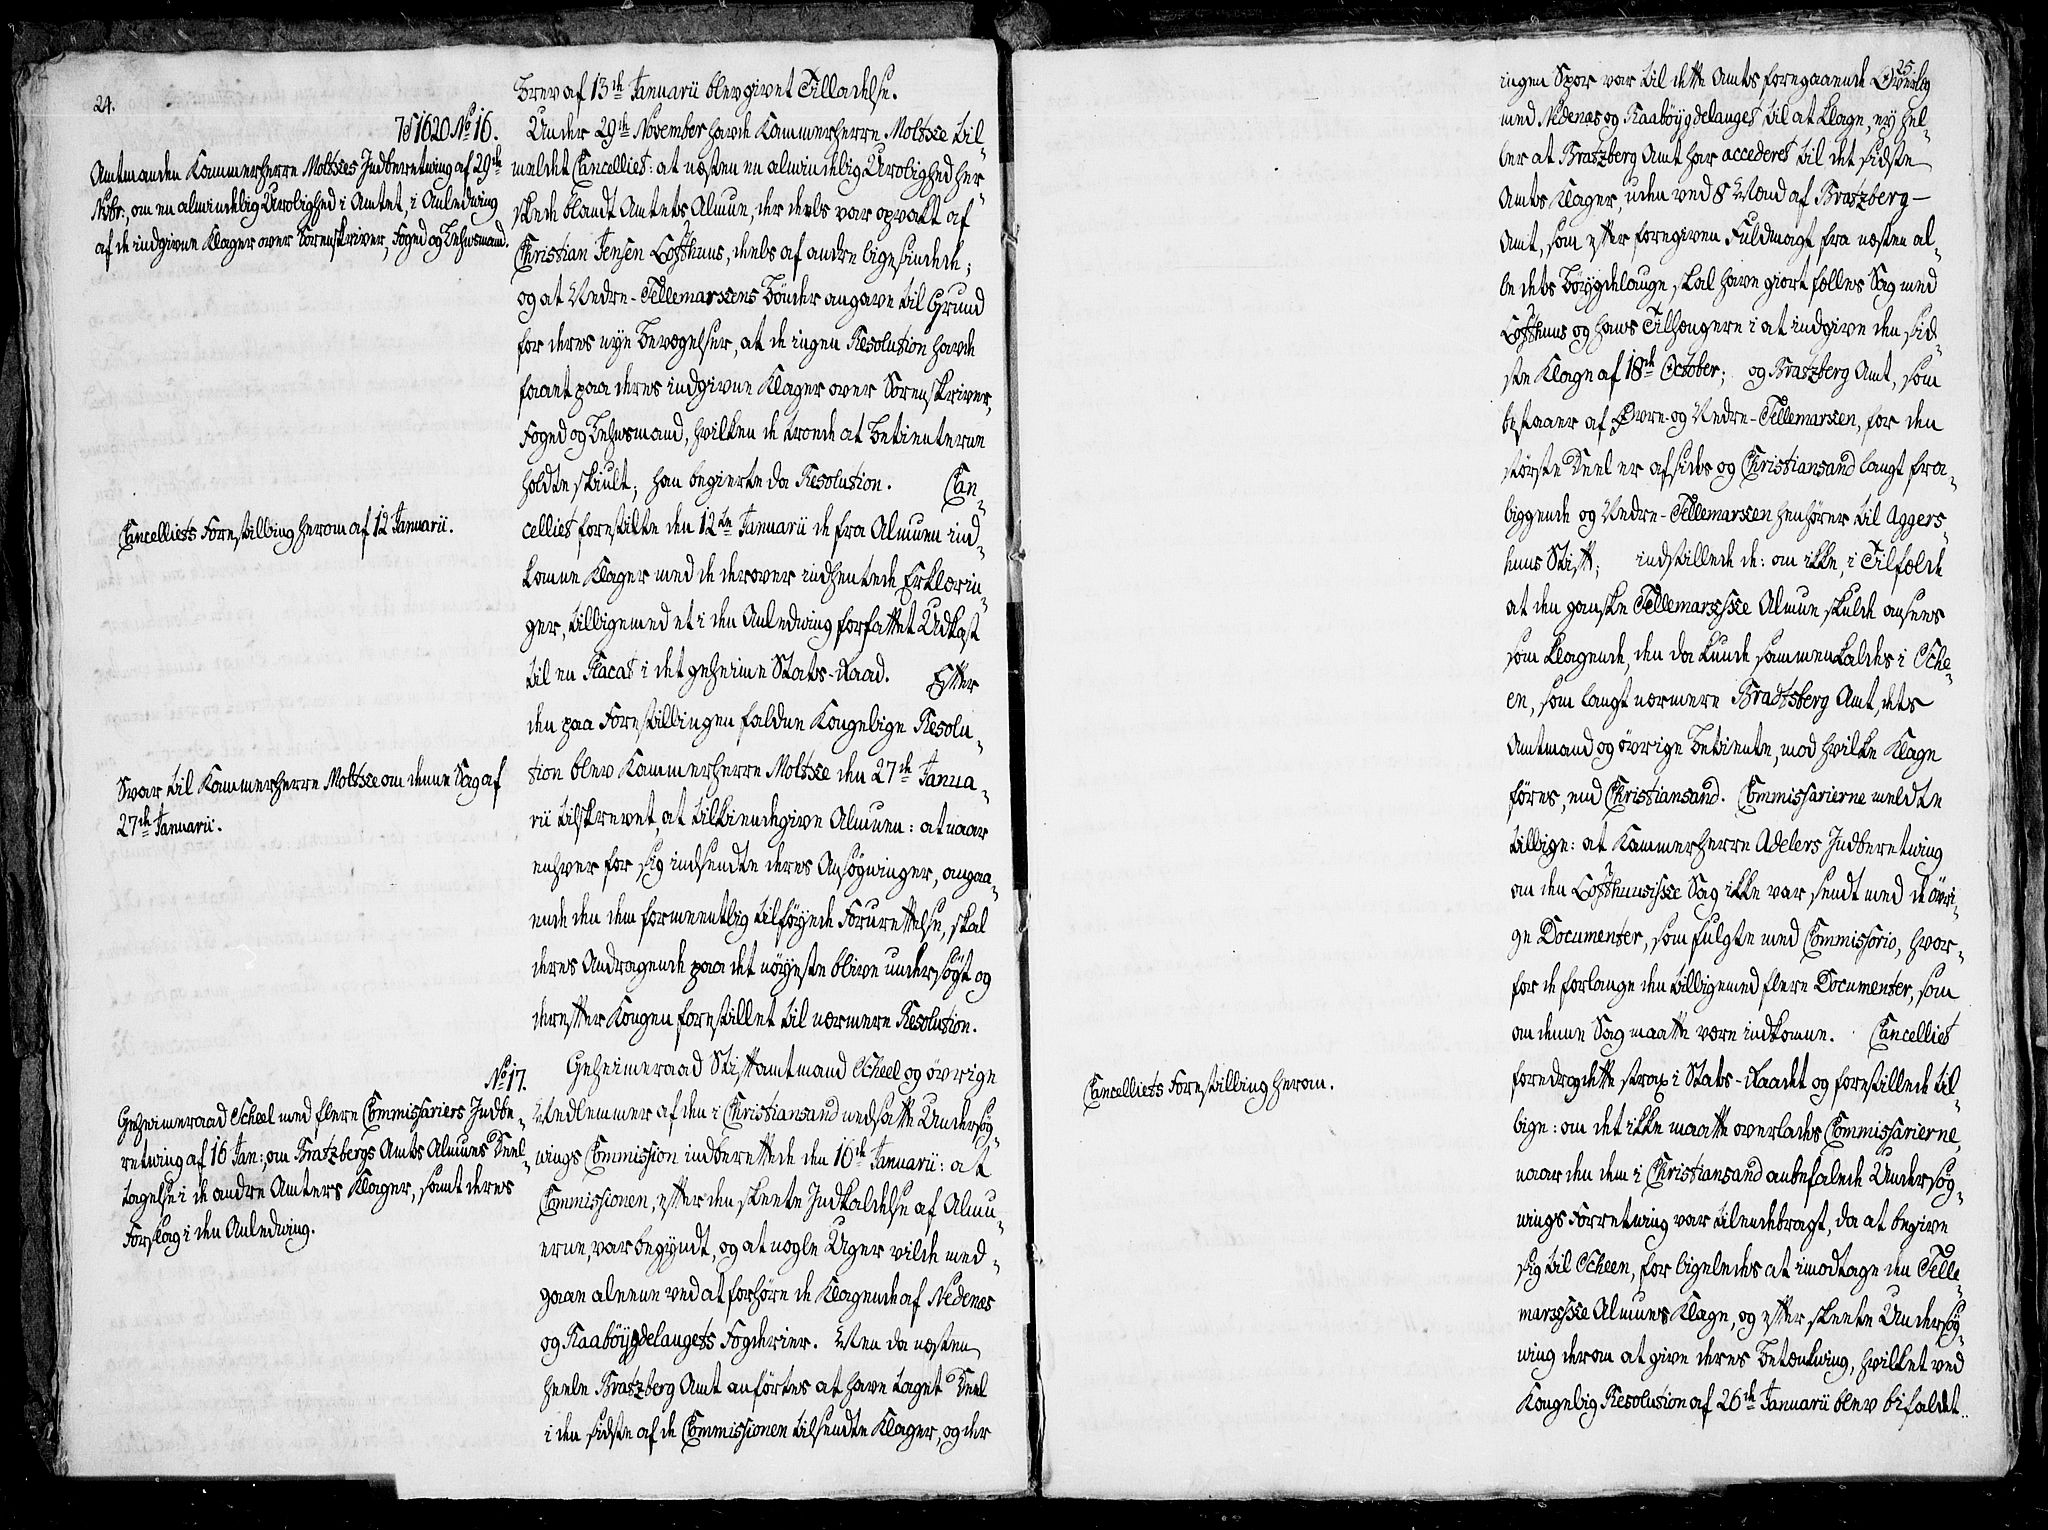 24.
7de 1620 No 16.
Amtmanden Kammerherre Moltkes Indberetning af 29de
Nobr:, om en almindelig Urolighed i Amtet, i Anledning
af de indgivne Klager over Sorenskriver, Foged og Lehnsmand.
Cancelliets Forestilling herom af 12 Januarii.
Svar til Kammerherre Moltke om denne Sag af
27de Januarii.
No 17.
Geheimeraad Scheel med flere Commissariers Indbe-
retning af 16 Jan:, om Bratzbergs Amts Almues Deel-
tagelse i de andre Amters Klager, samt deres
Forslag i den Anledning.
brev af 13de Januarii blev givet Tilladelse.
Under 29de November havde Kammerherre Moltke til-
meldet Cancelliet: at næsten en almindelig Urolighed her-
skede blandt Amtets Almue, der deels var opvakt af
Christian Jensen Lofthuus, deels af andre ligesindede;
og at Nedre-Tellemarkens Bönder angave til Grund
for deres nye Bevægelser, at de ingen Resolution havde
faaet paa deres indgivne Klager over Sorenskriver,
Foged og Lehnsmand, hvilken de troede at Betienterne
holdte skiult; han begierte da Resolution. Can-
celliet forestilte den 12te Januarii de fra Almuen ind-
komne Klager med de derover indhentede Erklærin-
ger, tilligemed et i den Anledning forfattet Udkast
til en Placat i det geheime Stats-Raad. Efter
den paa Forestillingen faldne Kongelige Resolu-
tion blev Kammerherre Moltke den 27de Janua-
rii tilskrevet, at tilkiendegive Almuen: at naar
enhver for sig indsendte deres Ansögninger, angaa-
ende den dem formeentlig tilföyede Forurettelse, skal
deres Andragende paa det nöyeste blive undersögt og
derefter Kongen forestillet til nærmere Resolution.
Geheimeraad Stiftamtmand Scheel og övrige
Medlemmer af den i Christiansand nedsatte Undersög-
nings Commission indberettede den 16de Januarii: at
Commissionen, efter den skeete Indkaldelse af Almu-
erne, var begyndt, og at nogle Uger vilde med-
gaae aleene ved at forhöre de Klagende af Nedenæs
og Raaböygdelaugets Fogderier. Men da næsten
heele Bratzberg Amt anförtes at have taget Deel
i den sidste af de Commissionen tilsendte Klager, og der
25
ingen Spor var til dette Amts foregaaende Overlæg
med Nedenæs og Raaböygdelauget til at klage, ey hel-
ler at Bratzberg Amt har accederet til det sidste
Amts Klager, uden ved 8 Mænd af Bratzberg-
Amt, som efter foregiven Fuldmagt fra næsten al-
le dets Böygdelauge, skal have giort fælles Sag med
Lofthuus og hans Tilhængere i at indgive den sid-
ste Klage af 18de October; og Bratzberg Amt, som
bestaaer af Øvre- og Nedre-Tellemarken, for den
störste Deel er afsides og Christiansand langt fra-
liggende og Nedre-Tellemarken henhörer til Aggers-
huus Stift; indstillede de: om ikke, i Tilfælde
at den ganske Tellemarkske Almue skulde ansees
som klagende, den da kunde sammenkaldes i Sche-
en, som langt nærmere Bradtsberg Amt, dets
Amtmand og övrige Betiente, mod hvilke Klage
föres, end Christiansand. Commissarierne meldte
tillige: at Kammerherre Adelers Indberetning
om den Lofthuusiske Sag ikke var sendt med de övri-
ge Documenter, som fulgte med Commissorio, hvor-
for de forlange den tilligemed flere Documenter, som
om denne Sag maatte være indkomne. Cancelliet
foredrog dette strax i Stats-Raadet og forestillede til-
lige: om det ikke maatte overlades Commissarierne,
naar den dem i Christiansand anbefalede Undersög-
nings Forretning var tilendebragt, da at begive
sig til Scheen, for ligeledes at imodtage den Telle-
markske Almues Klage, og efter skeete Undersög-
ning derom at give deres Betænkning, hvilket ved
Kongelig Resolution af 26de Januarii blev bifaldet.
Cancelliets Forestilling herom.